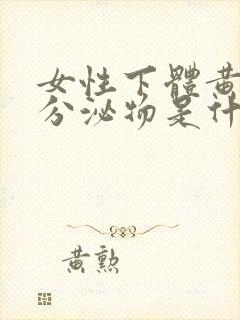 女性下體黃
分泌物是什
黃勲